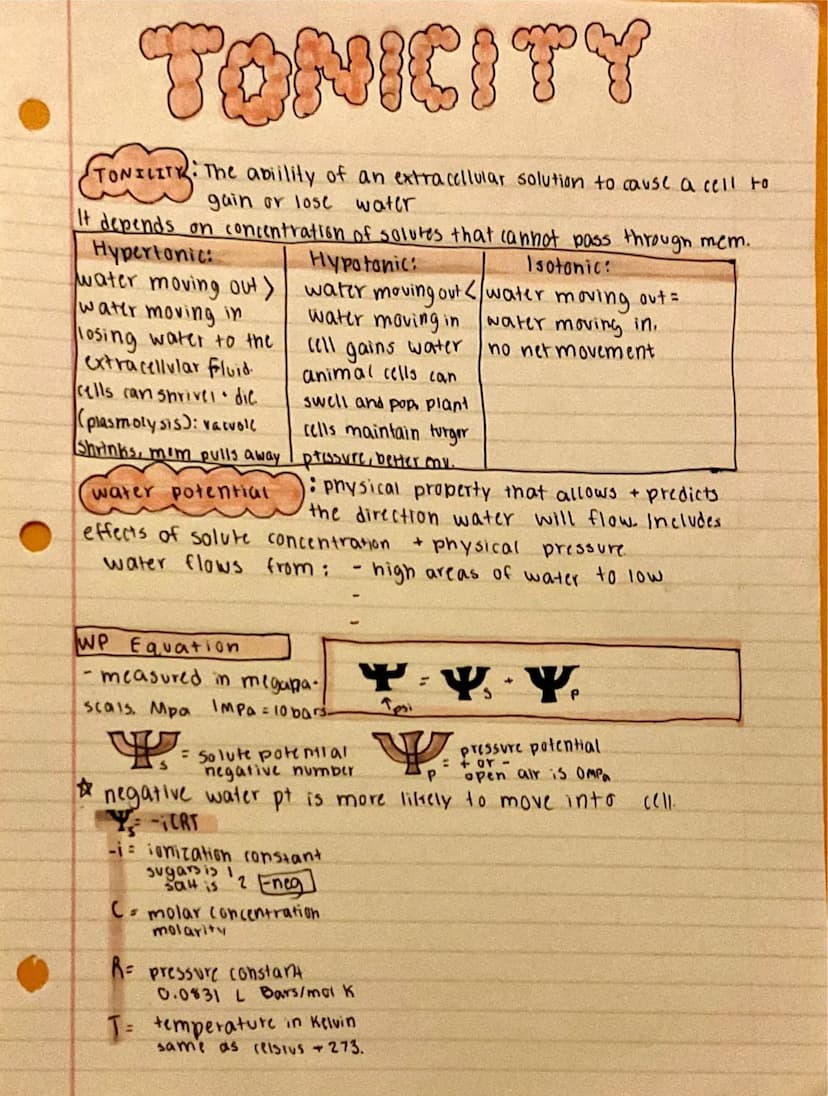 TONICITY
TONILITY: The abiility of an extracellular solution to cause a cell to
gain or lose water
It depends on concentration of solutes that cannot pass through mem.
Hypertonic:
water moving out >
water moving in
losing water to the
extracellular fluid.
cells can shrivel + die
(plasmolysis): vacuole
shrinks, mem pulls away
Hypotonic:
water moving out <
water moving in
cell gains water
animal cells can
swell and pop, plant
cells maintain turgor
pressure, better env.
Isotonic:
water moving out =
water moving in.
no net movement
water potential : physical property that allows + predicts
the direction water will flow. Includes
effects of solute concentration + physical pressure.
water flows from: - high areas of water to low
-
-
WP Equation
- measured in megapa-
scals. Mpa 1MPa = 10 bars
Ψ = Ψs + Ψp
↑psi
Ψs = solute potential
negative number
Ψp = pressure potential
+ or -
open air is 0MPa
☆ negative water pt is more likely to move into cell.
Ψs = -iCRT
-i = ionization constant
sugars is 1
salt is 2 -neg
C = molar concentration
molarity
R = pressure constant
0.0831 L Bars/mol K
T = temperature in Kelvin
same as celsius + 273.